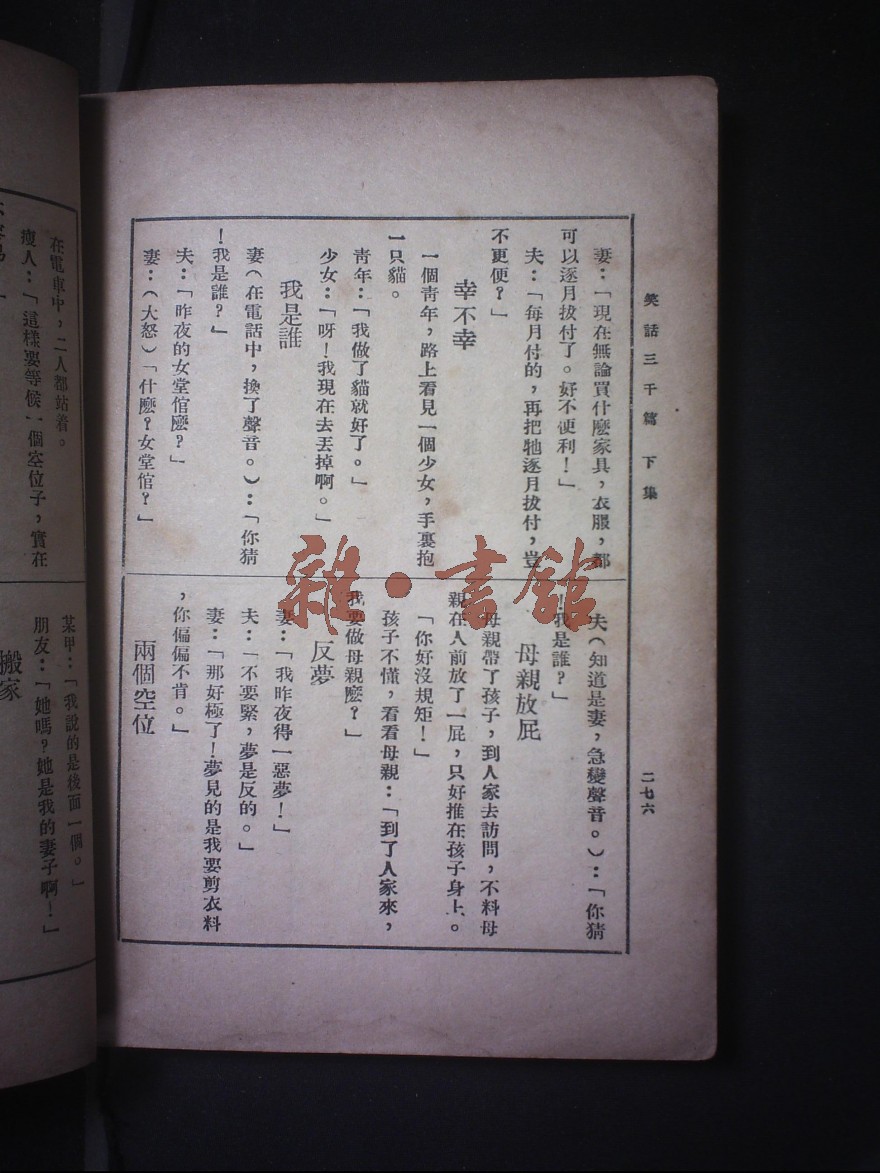 笑話三千篇 下集
二七六
妻：「現在無論買什麽家具，衣服，都
可以逐月拔付了。好不便利！」
夫：「每月付的，再把牠逐月拔付，豈
不更便？」
幸不幸
一個靑年，路上看見一個少女，手裏抱
一只貓。
靑年：「我做了貓就好了。」
少女：「呀！我現在去丟掉啊。」
我是誰
妻（在電話中，換了聲音。）：「你猜
！我是誰？」
夫：「昨夜的女堂倌麽？」
妻：（大怒）「什麽？女堂倌？」
夫（知道是妻，急變聲音。）：「你猜
！我是誰？」
母親放屁
母親帶了孩子，到人家去訪問，不料母
親在人前放了一屁，只好推在孩子身上。
「你好沒規矩！」
孩子不懂，看看母親：「到了人家來，
我要做母親麽？」
反夢
妻：「我昨夜得一惡夢！」
夫：「不要緊，夢是反的。」
妻：「那好極了！夢見的是我要剪衣料
，你偏偏不肯。」
兩個空位
在電車中，二人都站着。
瘦人：「這樣要等候一個空位子，實在
某甲：「我說的是後面一個。」
朋友：「她嗎？她是我的妻子啊！」
搬家
雜·書館